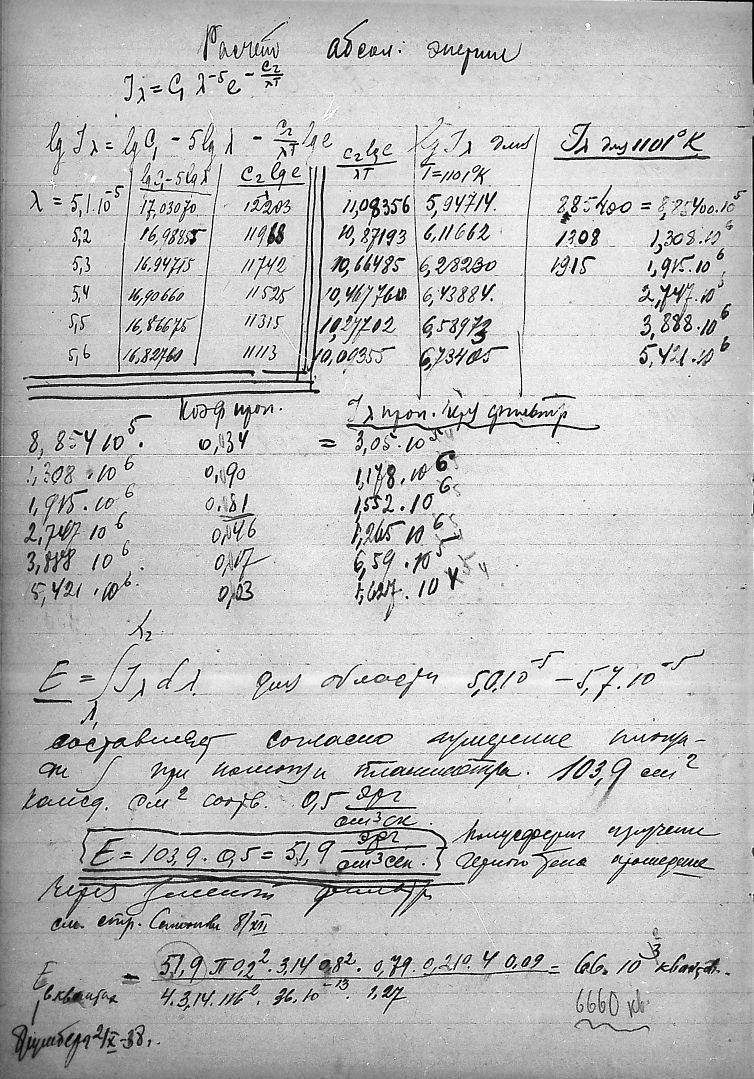 Расчёт абсол. энергии
Iλ = C₁ λ⁻⁵ e^(-C₂/λT)
lg Iλ = lg C₁ - 5 lg λ - C₂/λT lg e
lg C₁ - 5 lg λ | C₂ lg e / T | C₂ lg e / λT | lg Iλ для T = 1101°K | Iλ для 1101°K
λ = 5,1·10⁻⁵ 17,03070 12203 11,08356 5,94714. 885400 = 8,85400·10⁵
5,2 16,98855 11968 10,87193 6,11662 1308 1,308·10⁶
5,3 16,94715 11742 10,66485 6,28230 1915 1,915·10⁶
5,4 16,90660 11525 10,46776 6,43884. 2,747·10⁶
5,5 16,86675 11315 10,27702 6,58973 3,888·10⁶
5,6 16,82760 11113 10,09355 6,73405 5,421·10⁶
Коэф проп. Iλ проп. чрез фильтр
8,854 10⁵. 0,034 = 3,05·10⁴
1,308·10⁶ 0,090 1,178·10⁶
1,915·10⁶ 0,081 1,552·10⁶
2,747 10⁶ 0,046 1,265 10⁶
3,888 10⁶. 0,17 6,59·10⁵
5,421·10⁶ 0,03 1,627·10⁴
E = ∫ Iλ dλ для области 5,0.10⁻⁵ - 5,7.10⁻⁵
составляет согласно измерение площа-
ди ∫ при помощи планиметра. 103,9 cm²
Кажд. см² соотв. 0,5 эрг/cm² ск.
E = 103,9·0,5 = 51,9 эрг/cm² сек. Полусферич излучение
черного тела прошедшее
через зеленый фильтр
см. стр. 8/XII
E в квантах = 51,9 π 0,2²·3,14 0,8²·0,79·0,210·4 0,09 / 4·3,14·116²·36·10⁻¹³·1,27 = 6.6·10³ квант.
6660 кв